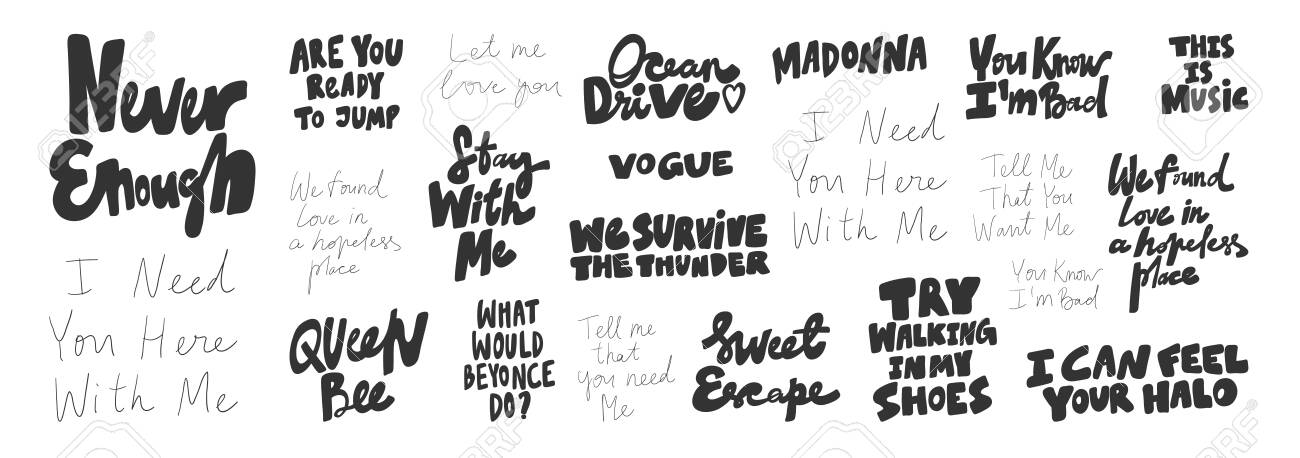 Never
Enough
I Need
You Here
With Me
ARE YOU
READY
TO JUMP
We found
Love in
a hopeless
place
QUEEN
Bee
Let me
love you
Stay
With
Me
WHAT
WOULD
BEYONCE
DO?
Ocean
Drive
VOGUE
We SURViVE
THE THUNDER
Tell me
that
you need
Me
Sweet
Escape
MADONNA
I Need
You Here
With Me
TRY
WALKING
IN MY
SHOES
You Know
I'm Bad
Tell Me
That You
Want Me
You Know
I'm Bad
THIS
IS
MUSiC
We found
Love in
a hopeless
place
I CAN FEEL
YOUR HALO
123RF